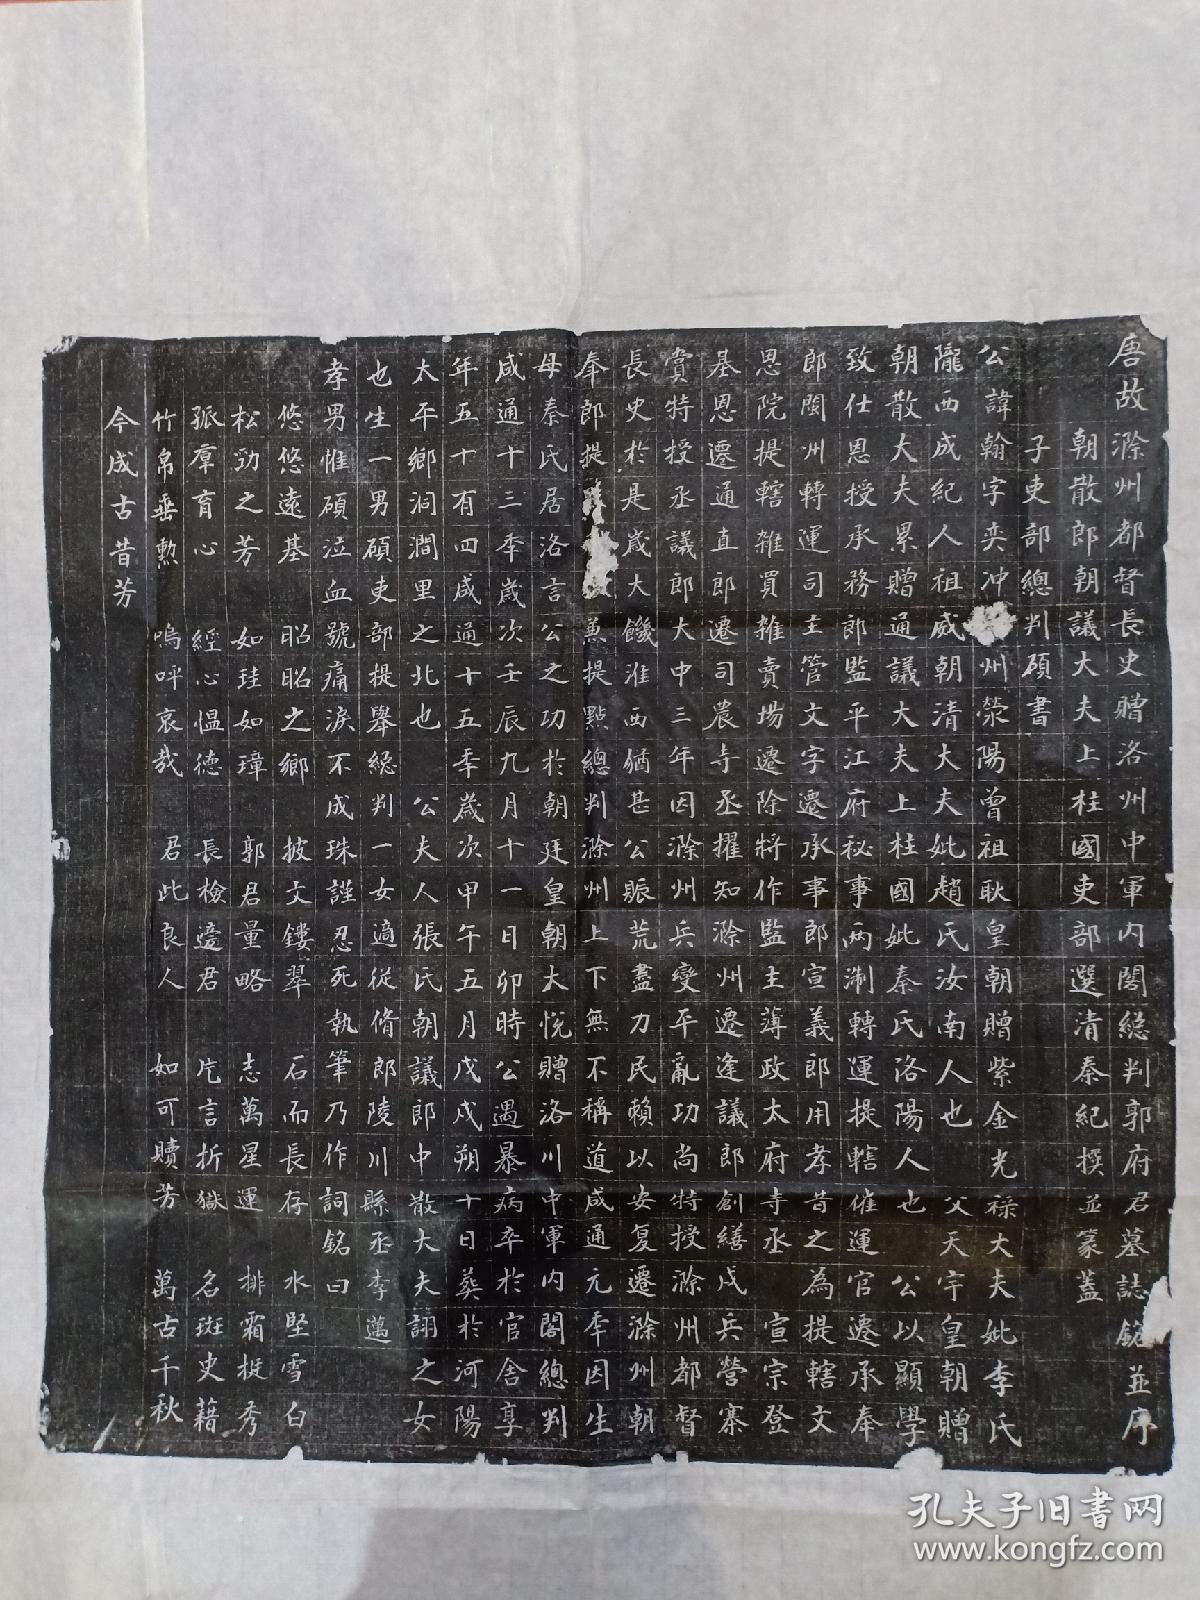 唐故滁州都督長史贈洛州中軍内閣總判郭府君墓誌銘並序
朝散郎朝議大夫上柱國吏部選清秦紀撰並篆蓋
子吏部總判碩書
公諱翰字奕沖州滎陽曾祖耿皇朝贈紫金光祿大夫妣李氏
隴西成紀人祖威朝清大夫妣趙氏汝南人也 父天宇皇朝贈
朝散大夫累贈通議大夫上柱國妣秦氏洛陽人也 公以顯學
致仕恩授承務郎監平江府秘事兩淛轉運提轄催運官遷承奉
郎閬州轉運司主管文字遷承事郎宣義郎用孝昔之為提轄文
思院提轄雜買雜賣場遷除將作監主薄政太府寺丞 宣宗登
基恩遷通直郎遷司農寺丞擢知滁州遷逢議郎創繕戍兵營寨
賞特授丞議郎大中三年因滁州兵變平亂功尚特授滁州都督
長史於是歲大饑淮西猶甚公賑荒盡力民賴以安复遷滁州朝
奉郎提兼提點總判滁州上下無不稱道咸通元年因生
母秦氏居洛言公之功於朝廷皇朝大悅贈洛川中軍内閣總判
咸通十三年歲次壬辰九月十一日卯時公遇暴病卒於官舍享
年五十有四咸通十五年歲次甲午五月戊戌朔十日葬於河陽
太平鄉洞澗里之北也 公夫人張氏朝議郎中散大夫詡之女
也生一男碩吏部提舉總判一女適從脩郎陵川縣丞李邁
孝男惟碩泣血號痛淚不成珠謹忍死執筆乃作詞銘曰
悠悠遠基 昭昭之鄉 披文鏤翠 石而長存 水堅雪白
松勁之芳 如珪如璋 郭君量略 志萬星運 排霜挺秀
孤羣育心 經心愠德 長檢遠君 片言折獄 名斑史藉
竹帛垂勲 嗚呼哀哉 君此良人 如可贖芳 萬古千秋
今成古昔芳
孔夫子旧书网
www.kongfz.com